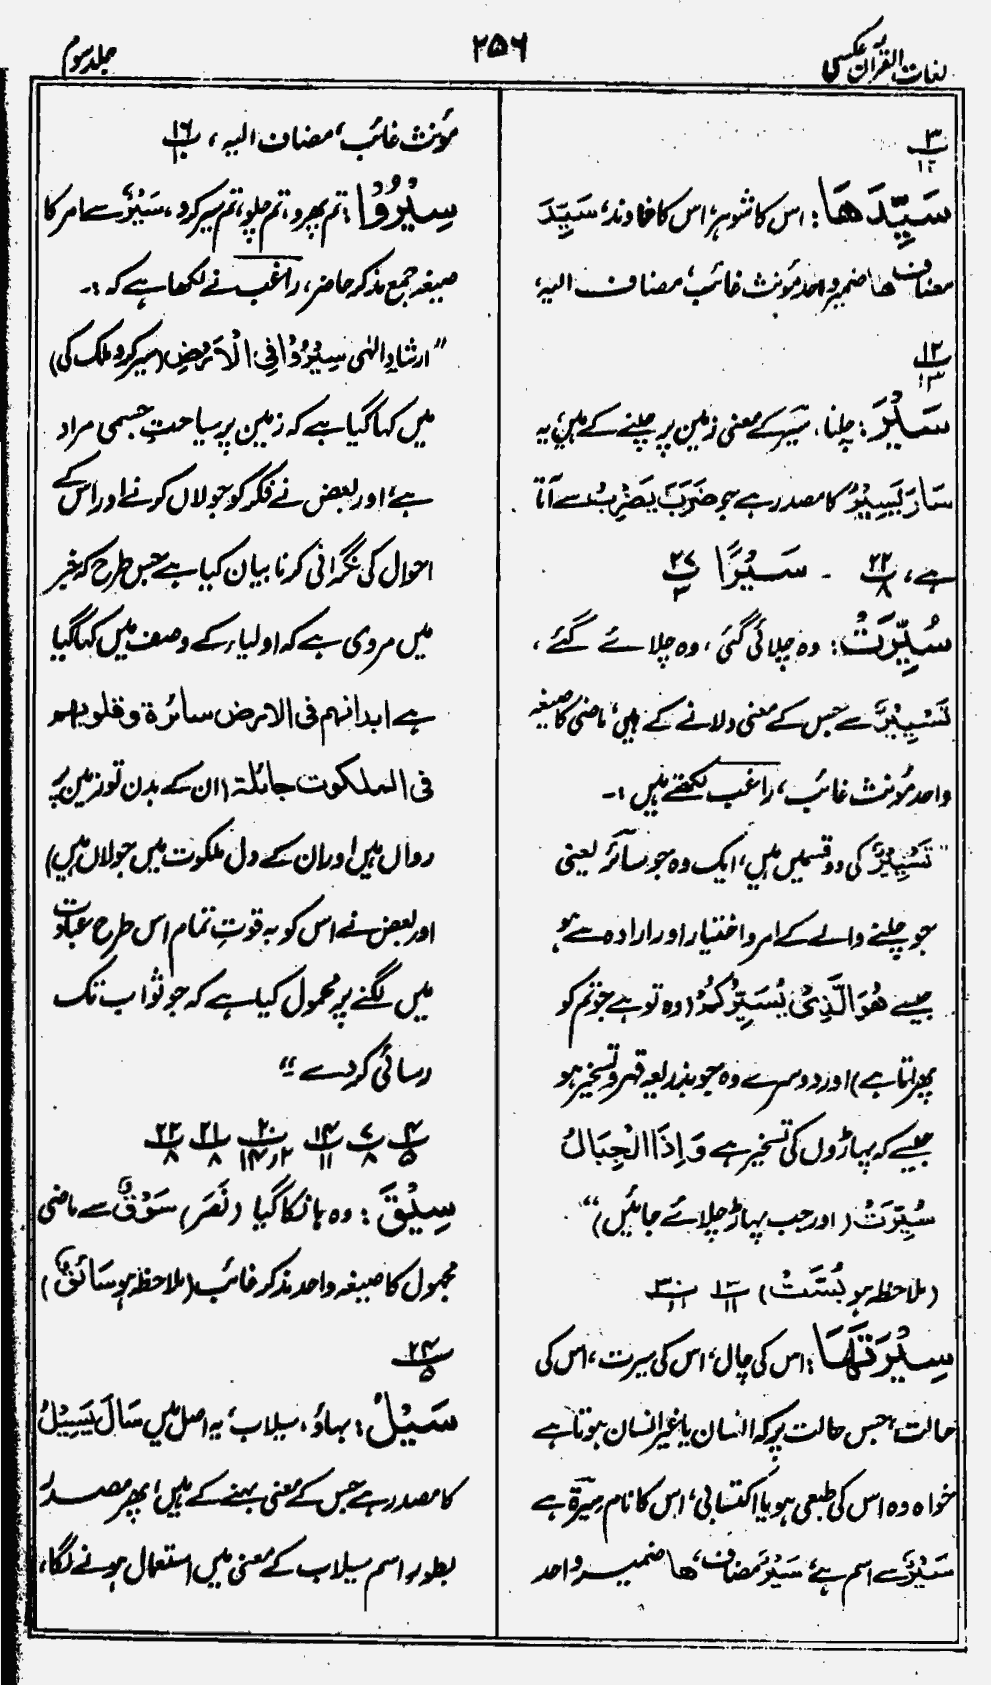 لغات القرآن عکسی
۲۵۶
جلد سوم
۳
۱۲
سَیِّدَھَا : اس کا شوہر، اس کا خاوند، سَیِّدَ
مضاف ھا ضمیر واحد مؤنث غائب، مضاف الیہ،
۱۲
۱۳
سَیْرَ : چلنا، سَیر کے معنی زمین پر چلنے کے ہیں، یہ
سَارَ یَسِیْرُ کا مصدر ہے جو ضَرَبَ یَضْرِبُ سے آتا
ہے، ۲۲/۸ ۔ سَیْرًا ۲۷/۳
سُیِّرَتْ : وہ چلائی گئی، وہ چلائے گئے،
تَسْیِیْرٌ سے جس کے معنی چلانے کے ہیں، ماضی کا صیغہ
واحد مؤنث غائب، راغب لکھتے ہیں :۔
"تَسْیِیْرٌ کی دو قسمیں ہیں، ایک وہ جو سائر یعنی
جو چلنے والے کے امر و اختیار اور ارادہ سے ہو
جیسے ھُوَ الَّذِیْ یُسَیِّرُکُمْ (وہ تو ہے جو تم کو
پھراتا ہے) اور دوسرے وہ جو بذریعہ قہر و تسخیر ہو
جیسے کہ پہاڑوں کی تسخیر ہے وَاِذَا الْجِبَالُ
سُیِّرَتْ (اور جب پہاڑ چلائے جائیں)"۔
(ملاحظہ ہو بُسَّتْ) ۱۳/۱۱ ۳۰/۱،۶
سِیْرَتَھَا : اس کی چال، اس کی سیرت، اس کی
حالت، جس حالت پر کہ انسان یا غیر انسان ہوتا ہے
خواہ وہ اس کی طبعی ہو یا اکتسابی، اس کا نام سیرۃ ہے
سَیْرٌ سے اسم ہے، سَیْرَ مضاف، ھا ضمیر واحد
مؤنث غائب، مضاف الیہ، ۱۶/۱۰
سِیْرُوْا : تم پھرو، تم چلو، تم سیر کرو، سَیْرٌ سے امر کا
صیغہ جمع مذکر حاضر، راغب نے لکھا ہے کہ :۔
"ارشادِ الٰہی سِیْرُوْا فِی الْاَرْضِ (سیر کرو ملک کی)
میں کہا گیا ہے کہ زمین پر سیاحتِ جسمی مراد
ہے، اور بعض نے فکر کو جولاں کرنے اور اس کے
احوال کی نگرانی کرنا بیان کیا ہے جس طرح کہ خبر
میں مروی ہے کہ اولیاء کے وصف میں کہا گیا
ہے ابدانہم فی الارض سائرۃ و قلوبہم
فی الملکوت جائلۃ (ان کے بدن تو زمین پر
رواں ہیں اور ان کے دل ملکوت میں جولاں ہیں)
اور بعض نے اس کو بہ قوتِ تمام اس طرح عبادت
میں لگنے پر محمول کیا ہے کہ جو ثواب تک
رسائی کردے۔"
۴/۵ ۷/۸ ۱۴/۱۱ ۲۰/۱۴،۲ ۲۱/۸ ۲۲/۸
سِیْقَ : وہ ہانکا گیا (نَصَرَ) سَوْقٌ سے ماضی
مجہول کا صیغہ واحد مذکر غائب (ملاحظہ ہو سَائِقٌ)
۲۴/۵
سَیْلٌ : بہاؤ، سیلاب، یہ اصل میں سَالَ یَسِیْلُ
کا مصدر ہے جس کے معنی بہنے کے ہیں، پھر مصدر
بطور اسم سیلاب کے معنی میں استعمال ہونے لگا،